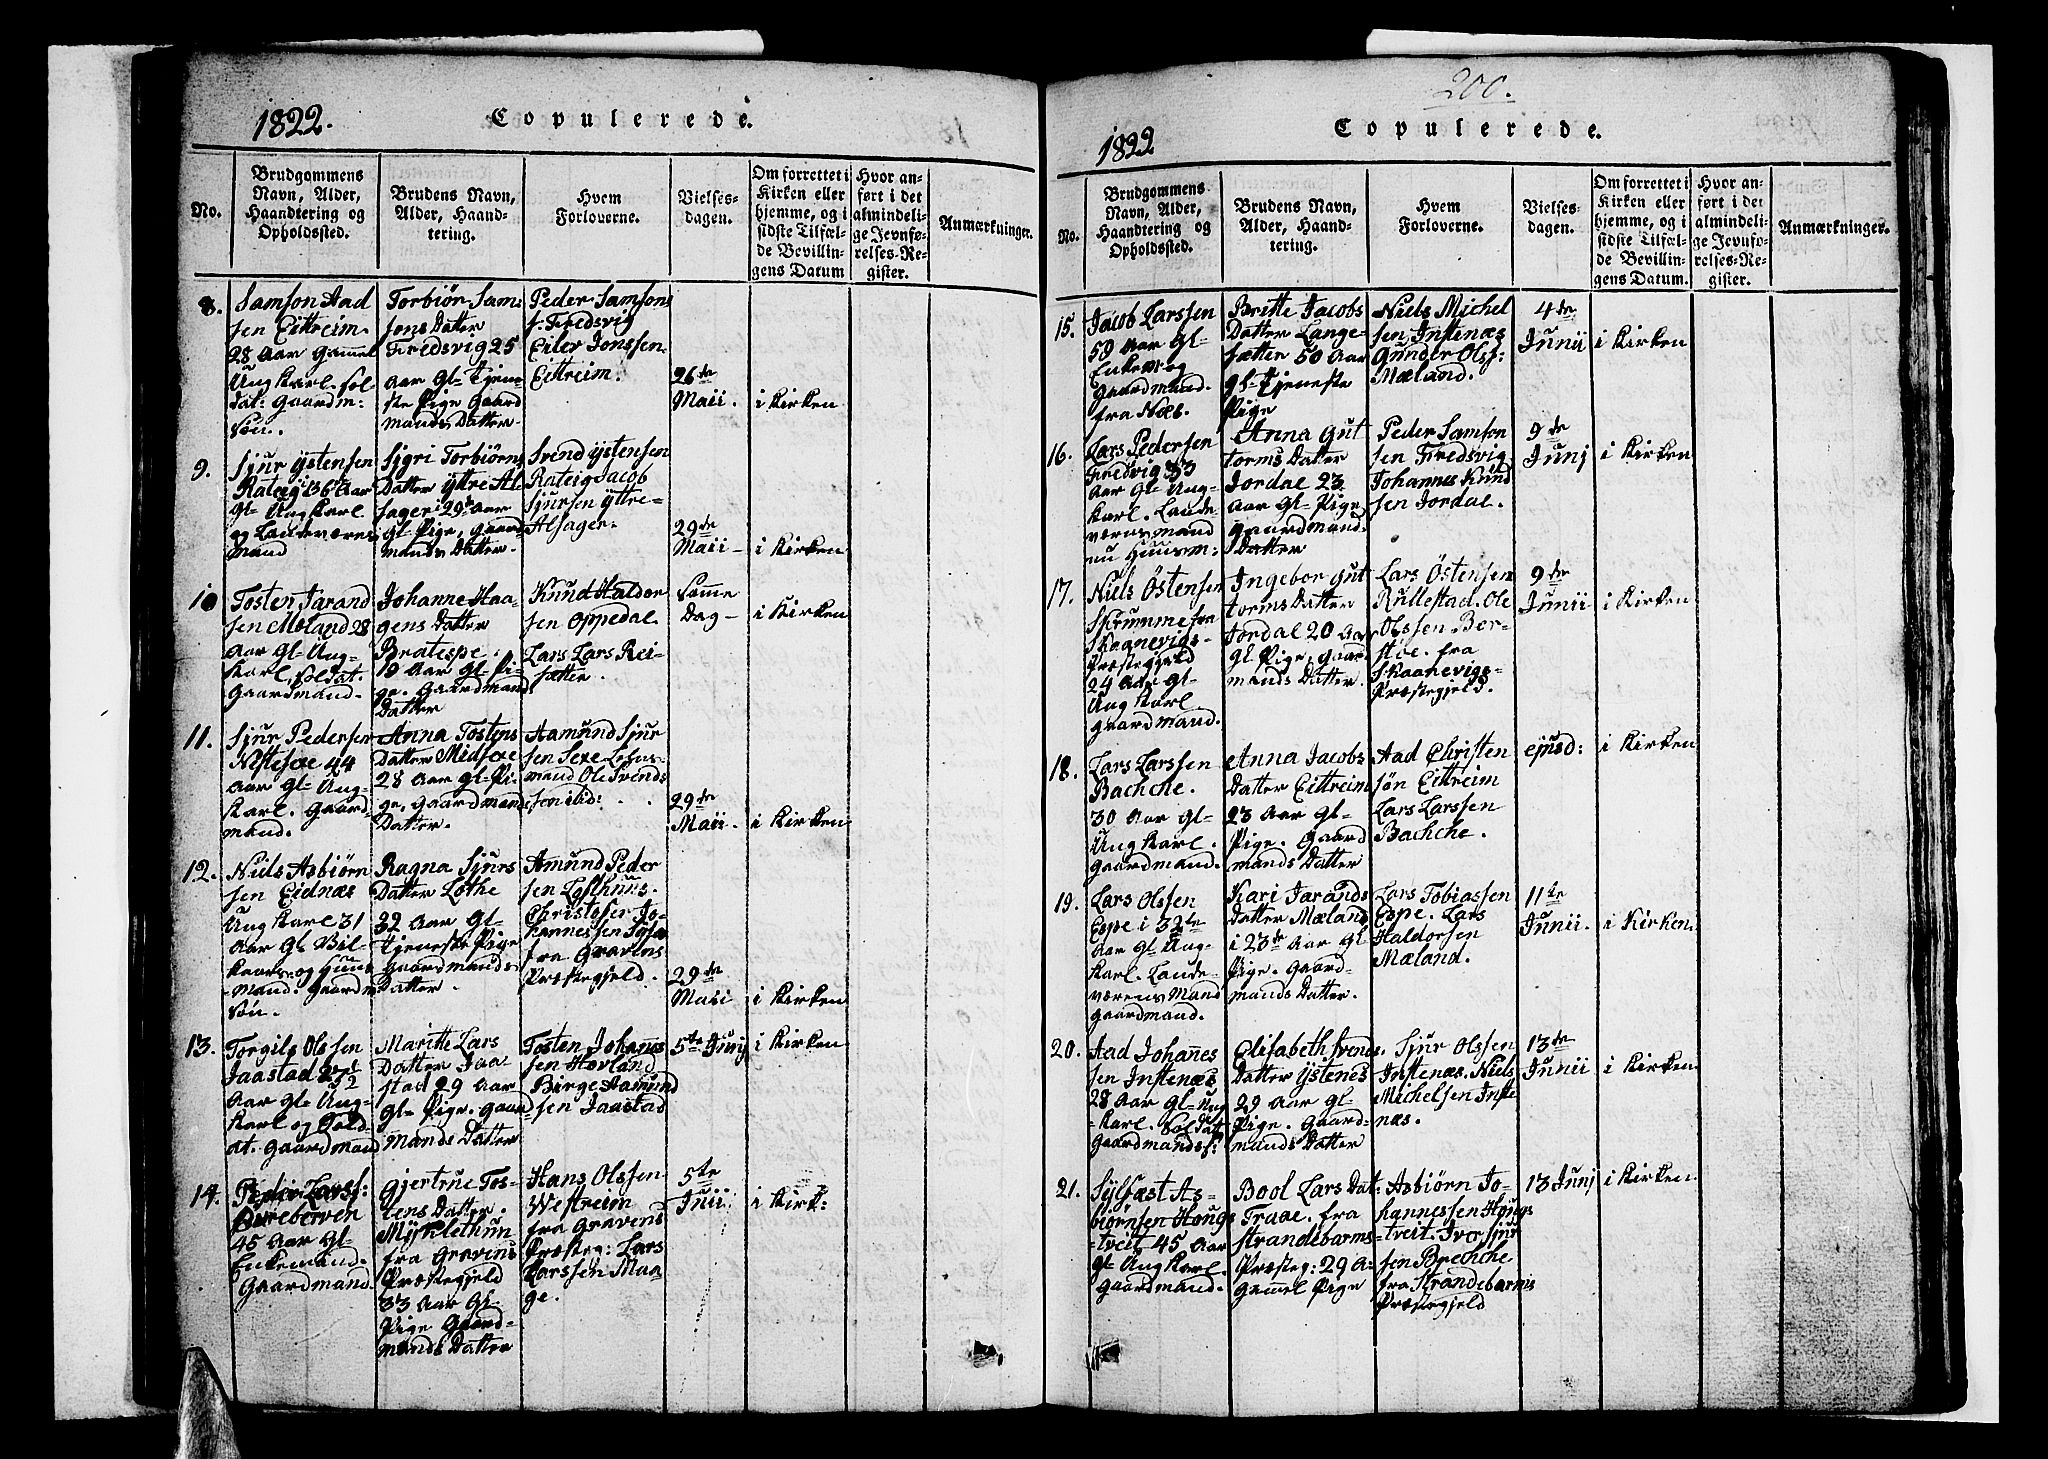 1822.
Copulerede.
No.
Brudgommens
Navn, Alder,
Haandtering og
Opholdssted.
Brudens Navn,
Alder, Haand-
tering.
Hvem
Forloverne.
Vielses-
dagen.
Om forrettet i
Kirken eller
hjemme, og i
sidste Tilfæl-
de Bevillin-
gens Datum
Hvor an-
ført i det
almindeli-
ge Jevnfø-
relses-Re-
gister.
Anmærkninger.
8.
Samson Aad
sen Eittreim
28 Aar Gammel
Ung Karl. sol
dat: Gaardm:
Søn.
Torbiør Sam:
sons Datter
Fredsvig 25
Aar Gl- Tjene-
ste Pige Gaard
mands Datter.
Peder Samson
s: Fredsvig
Eiler Jonssen
Eittreim.
26de
Maii.
i Kirken
9.
Sjur Ystensen
Rateig i 36te Aar
gl- Ung Karl
og Landeværns
Mand
Sigri Torbiørns
Datter Yttre Al
sager i 29de Aar
Gl- Pige, Gaard
mands Datter.
Svend Ystensen
Rateig Jacob
Sjursen Yttre-
Alsager.
29de
Maii-
i Kirken
10
Tosten Jarand
sen Moland 28
Aar Gl- Ung-
Karl, soldat.
Gaardmand.
Johanne Haa-
gens Datter
Bratespe.
19 Aar Gl- Pi-
ge. Gaardmand
Datter
Knud Haldor
sen Oppedal.
Lars Lars Rei-
sætter.
Samme
Dag-
i Kirken
11.
Sjur Pedersen
Nestesæ 44
Aar Gl- Ung-
Karl. Gaard-
mand.
Anna Tostens
Datter Midsæ
28 Aar Gl- Pi-
ge, Gaardmands
Datter.
Aamund Sjur
sen Sexe Lehns-
mand Ole Svends
sen ibid:
29de
Maii.
i Kirken
12.
Niels Asbiørn
sen Eidnæs
Ung Karl 31
Aar Gl. Bil-
kaars- og Huus
Mand. Gaardm
Søn.
Ragna Sjurs
Datter Lothe
32 Aar Gl-
Tjeneste Pige
Gaardmands
Datter.
Amund Peder
sen Lofthuus.
Christofer Jo-
hannessen
fra Gravens
Præstegjeld.
29de
Maii
i Kirken
13.
Torgils Olssen
Jaastad 27 1/2
Aar Gl- Ung-
Karl og Sold-
at. Gaardmand
Maritte Lars
Datter Jaa
stad 29 Aar
Gl- Pige. Gaard-
Mands Datter
Tosten Johanes
sen Hovland
Birge Aamund
sen Jaastad
5te Junij
i Kirken
14.
Peder Larss:
45 Aar Gl-
Enkemand.
Gaardmand.
Gjertrue Tos-
tens Datter.
Mykletthun
fra Gravens
Præstegjeld
33 Aar Gl-
Pige Gaard-
mands Datter
Hans Olssen
Westreim
fra Gravens
Præsteg: Lars
Larssen Maa
ge.
5te
Junii
i Kirk:
200.
1822
Copulerede.
No.
Brudgommens
Navn, Alder,
Haandtering og
Opholdssted.
Brudens Navn,
Alder, Haand-
tering.
Hvem
Forloverne.
Vielses-
dagen.
Om forrettet i
Kirken eller
hjemme, og i
sidste Tilfæl-
de Bevillin-
gens Datum.
Hvor an-
ført i det
almindeli-
ge Jevnfø-
relses-Re-
gister.
Anmærkninger.
15.
Jacob Larssen
59 Aar Gl-
Enkem og
Gaardmand.
fra Næs.
Britte Jacobs
Datter Lange-
sætter 50 Aar
Gl- Tjeneste
Pige
Niels Michel
sen Instenæs
Gunder Olss:
Mæland.
4de
Junii
i Kirken
16.
Lars Pedersen
Fredsvig 33
Aar Gl- Ung-
Karl. Lande-
værnsmand
nu Huusm:
Anna Gut
torms Datter
Jordal 23
Aar Gl- Pige
Gaardmand.
Datter
Peder Samson
sen Fredsvig
Johannes Knud
sen Jordal.
9de
Junj
i Kirken
17.
Niels Østensen
Skrumme fra
Skaanevigs-
Præstegjeld
24 Aar Gl-
Ung Karl
Gaardmand.
Ingebor Gut
torms Datter
Jordal 20 Aar
Gl. Pige, Gaar-
mands Datter.
Lars Østensen
Rullestad. Ole
Olssen Ber-
støe. fra
Skaanevigs-
Præstegjeld.
9de
Junii
i Kirken
18.
Lars Larssen
Bachche.
30 Aar Gl-
Ung Karl.
Gaardmand.
Anna Jacobs
Datter Eittreim
23 Aar Gl-
Pige. Gaard
mands Datter
Aad Christen
søn Eittreim
Lars Larssen
Bachche.
ejusd:
i Kirken
19.
Lars Olssen
Espe i 32te
Aar Gl- Ung-
Karl. Lande-
værens Mand
Gaardmand.
Kari Jarands
Datter Mæland
i 23de Aar Gl
Pige. Gaard-
mands Datter.
Lars Tobiassen
Espe. Lars
Haldorsen
Mæland.
11te
Junii.
i Kirken.
20.
Aad Johannes
sen Instenæs
28 Aar Gl- Ung
-Karl. Soldat
Gaardmands s:
Elisabeth Svends.
Datter Ystenes
29 Aar Gl-
Pige. Gaard-
mands Datter
Sjur Olssen
Instenæs. Niels
Michelsen Inste
næs.
13de
Junii
i Kirken
21.
Sylfæst As-
biørnsen Houge
-tveit 45 Aar
Gl- Ung Karl.
Gaardmand.
Bool Lars Dat:
Traae. fra
Strandebarms
Præsteg: 29 A-
Gammel Pige
Asbiørn Jo-
hannessen Hougs
-tveit. Iver Sjur
sen Brechche
fra Strandebarms
Præstegjeld
13 Junj
i Kirken